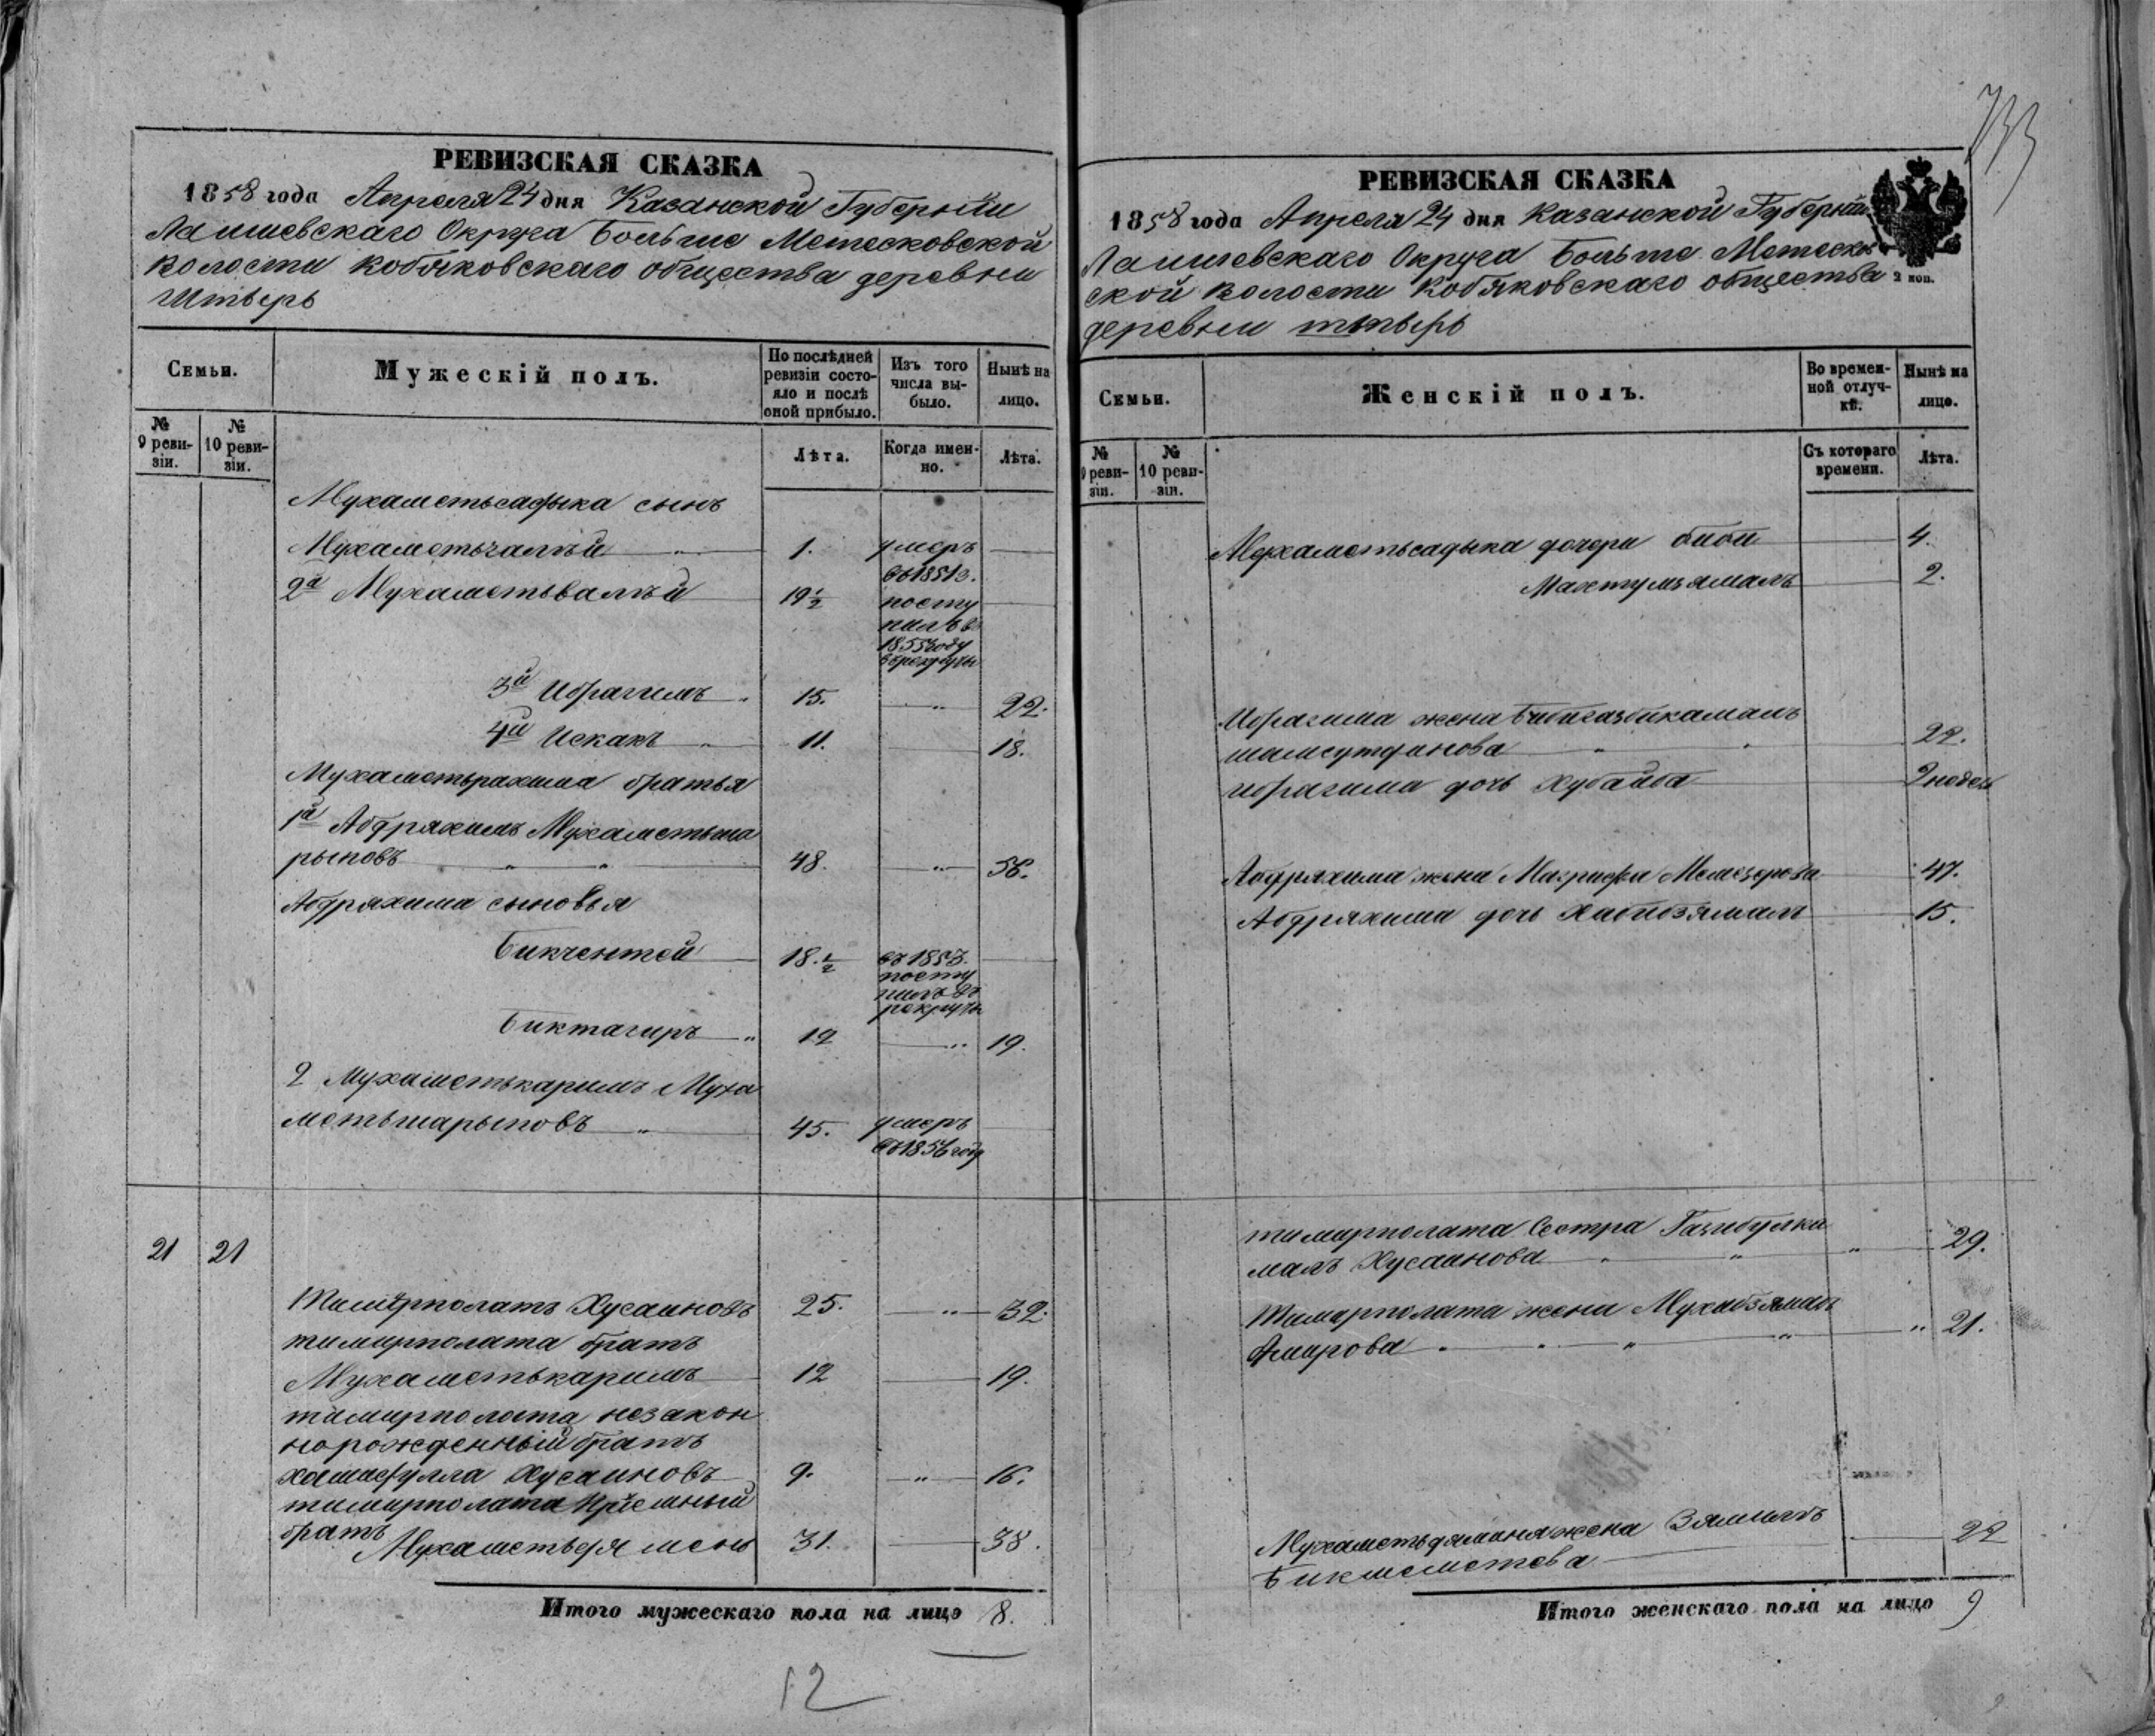 РЕВИЗСКАЯ СКАЗКА
1858 года Апреля 24 дня Казанской Губернии
Лаишевскаго Округа Больше Метесковской
волости Кобяковскаго общества деревни
Штырь
Семьи.
Мужескій полъ.
По послѣдней ревизіи состояло и послѣ оной прибыло.
Изъ того числа выбыло.
Нынѣ на лицо.
№ 9 реви-зіи.
№ 10 реви-зіи.
Лѣта.
Когда имен-но.
Лѣта.
Мухаметьсафыка сынъ
Мухаметьгалѣй 1. умеръ
въ 1851 г.
2й Мухаметьвалѣй 19½ посту
пилъ в
1855 году
в рекруты
3й Ибрагимъ 15. 22.
4й Искакъ 11. 18.
Мухаметьрахима братья
1й Абдряхимъ Мухаметьша
рыповъ 48. 56.
Абдряхима сыновья
Бикчентей 18.½ въ 1853.
посту
пилъ въ
рекруты
Биктагиръ 12 19.
2 Мухаметькаримъ Муха
метьшарыповъ 45. умеръ
въ 1856 году
21 21
Тимирполатъ Хусаиновъ 25. 32.
тимирполата братъ
Мухаметькаримъ 12 19.
тимирполата незакон
норожденный братъ
Хусаиновъ 9. 16.
тимирполата приемный
братъ Мухаметьдяминь 31. 38.
Итого мужескаго пола на лицо 8.
12
733
РЕВИЗСКАЯ СКАЗКА
1858 года Апреля 24 дня Казанской Губерніи
Лаишевскаго Округа Больше Метесков
ской волости Кобяковскаго общества
2 коп.
деревни штырь
Семьи.
Женскій полъ.
Во времен-ной отлуч-кѣ.
Нынѣ на лицо.
№ 9 реви-зіи.
№ 10 реви-зіи.
Съ котораго времени.
Лѣта.
Мухаметьсадыка дочери биби 4.
Махтумзямалъ 2.
Ибрагима жена
шамсутдинова 22.
ибрагима дочь Хубайба 2 недель
Абдряхима жена Магрифа 47.
Абдряхима дочь Хабибзямалъ 15.
тимирполата сестра
малъ Хусаинова 29.
Тимирполата жена Мухибзямалъ
Амирова 21.
Мухаметьдяминя жена
Бикмеметова 22
Итого женскаго пола на лицо 9